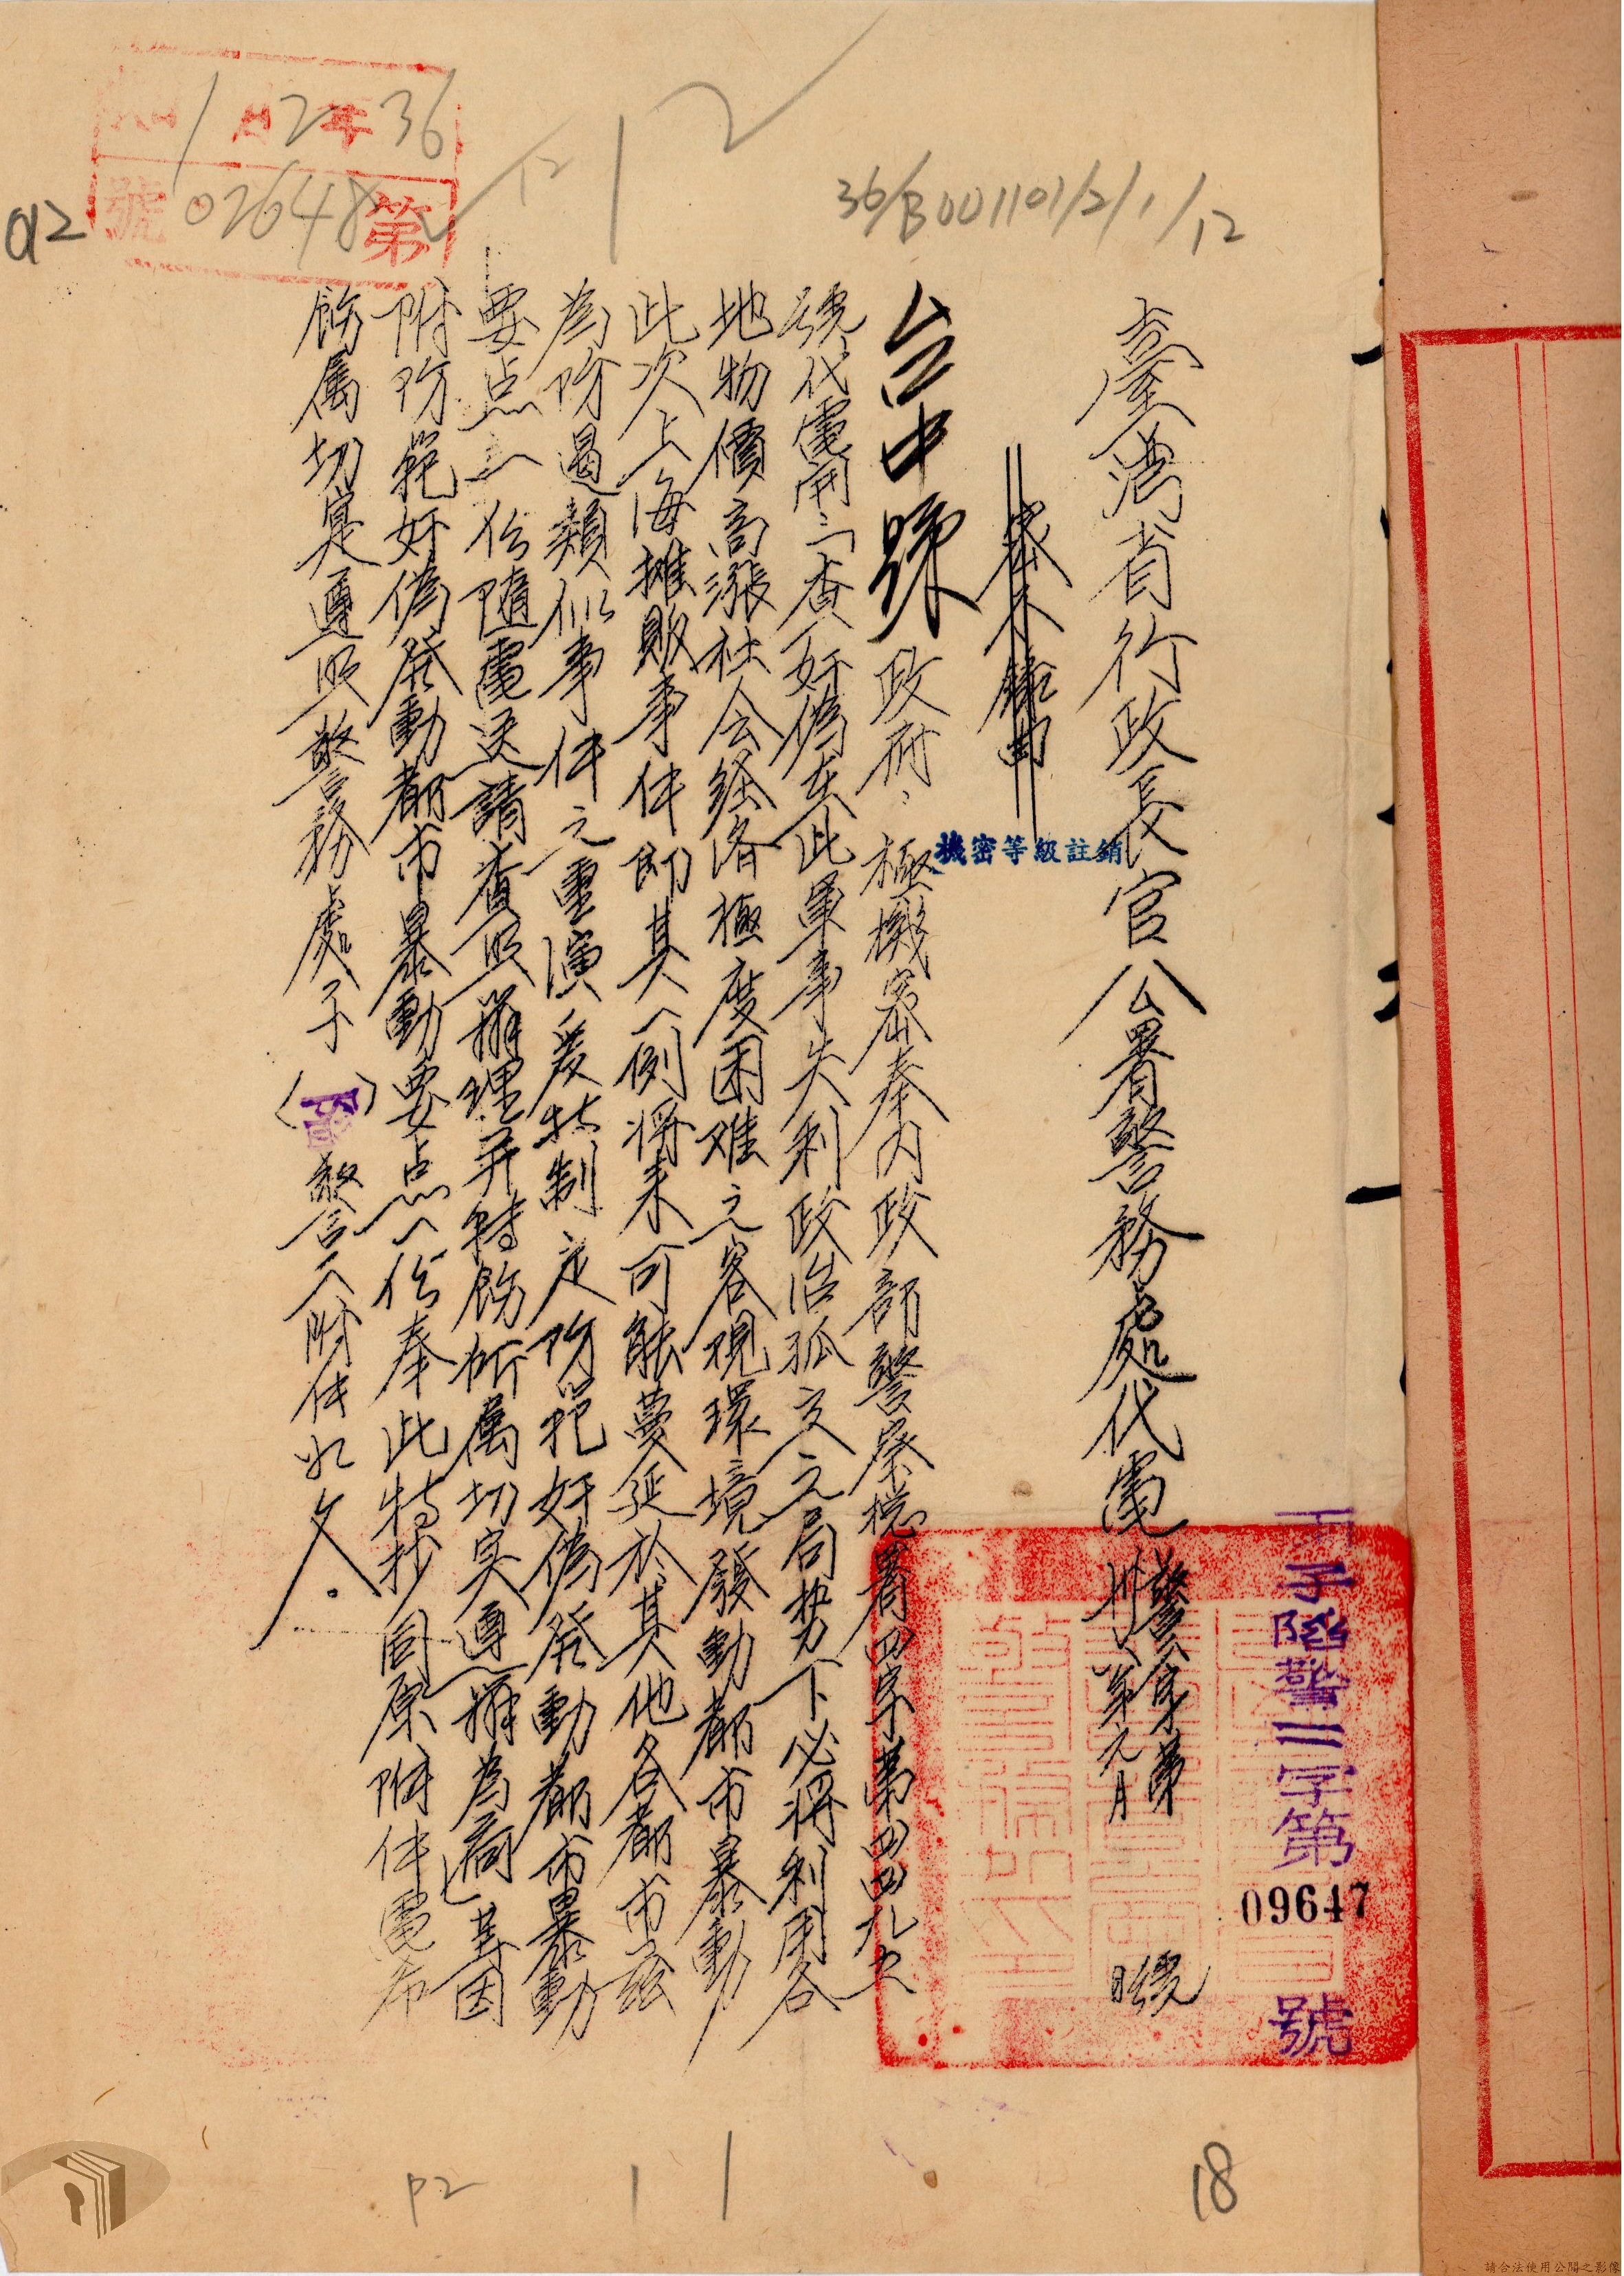 36/B001101/2/1/12
36年2月1
第02648號
012
12
臺灣省行政長官公署警務處代電
警 字第 號
卅 年元月 日
子 警二字第09647號
機密等級註銷
台中縣政府、極機密奉內政部警察總署四字第四四九
號代電開「查奸偽在此軍事失利政治孤立之局势下必將利用各
地物價高漲社会經济極度困难之客观環境發動都市暴動
此次上海攤販事件即其一例將来可能蔓延於其他各都市茲
為防遏類似事件之重演爰特制定防範奸偽發動都市暴動
要点一份隨電送請查照辦理并轉飭所屬切实遵辦為荷」等因
附防範奸偽發動都市暴動要点一份奉此特抄同原附件電希
飭属切實遵照警務處子（ ）警二附件如文。
P2
18
請合法使用公開之影像